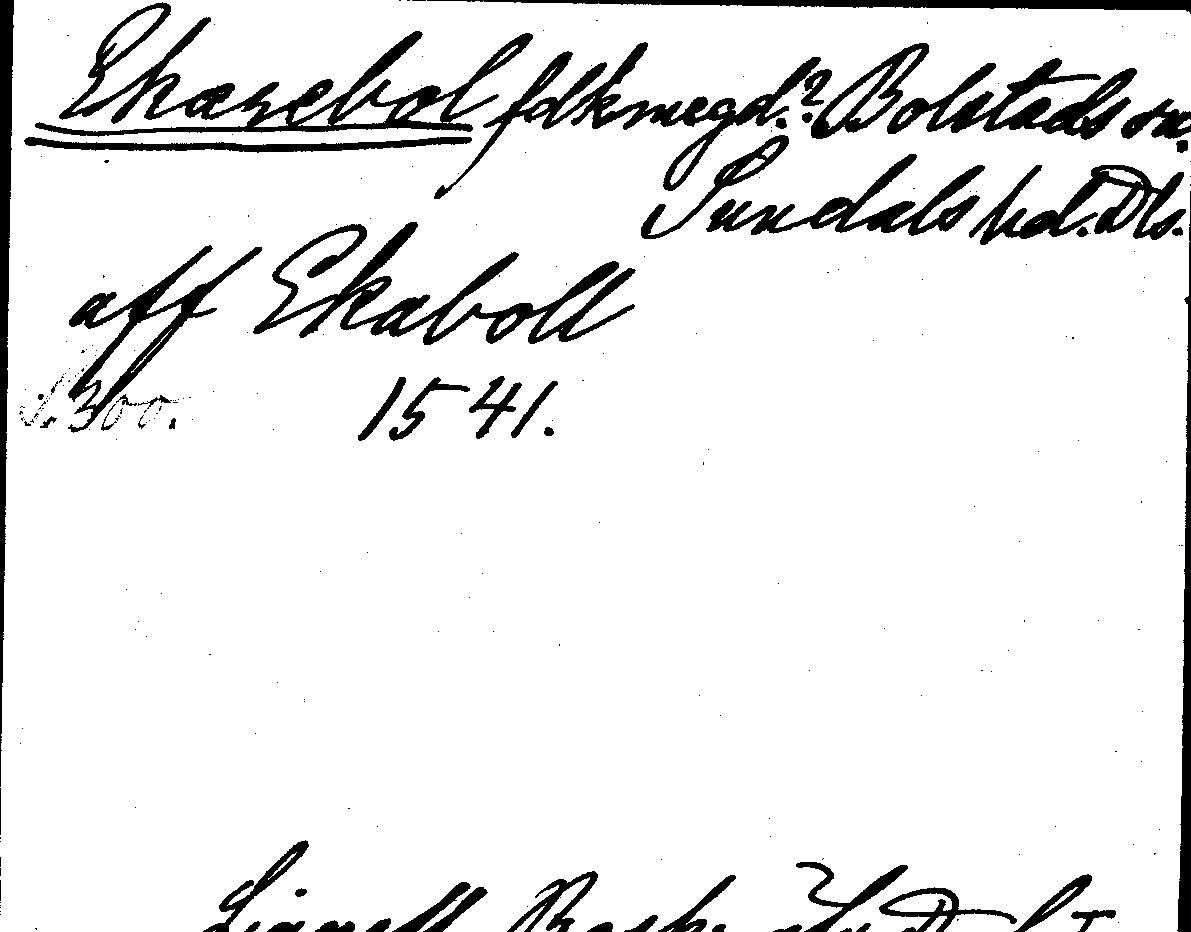 Ekarebol fdkmegd.? Bolstads sn.
Sundals hd. Dls.
aff Ekaboll
S. 300. 1541.
Lignell Besk. öfv. D.